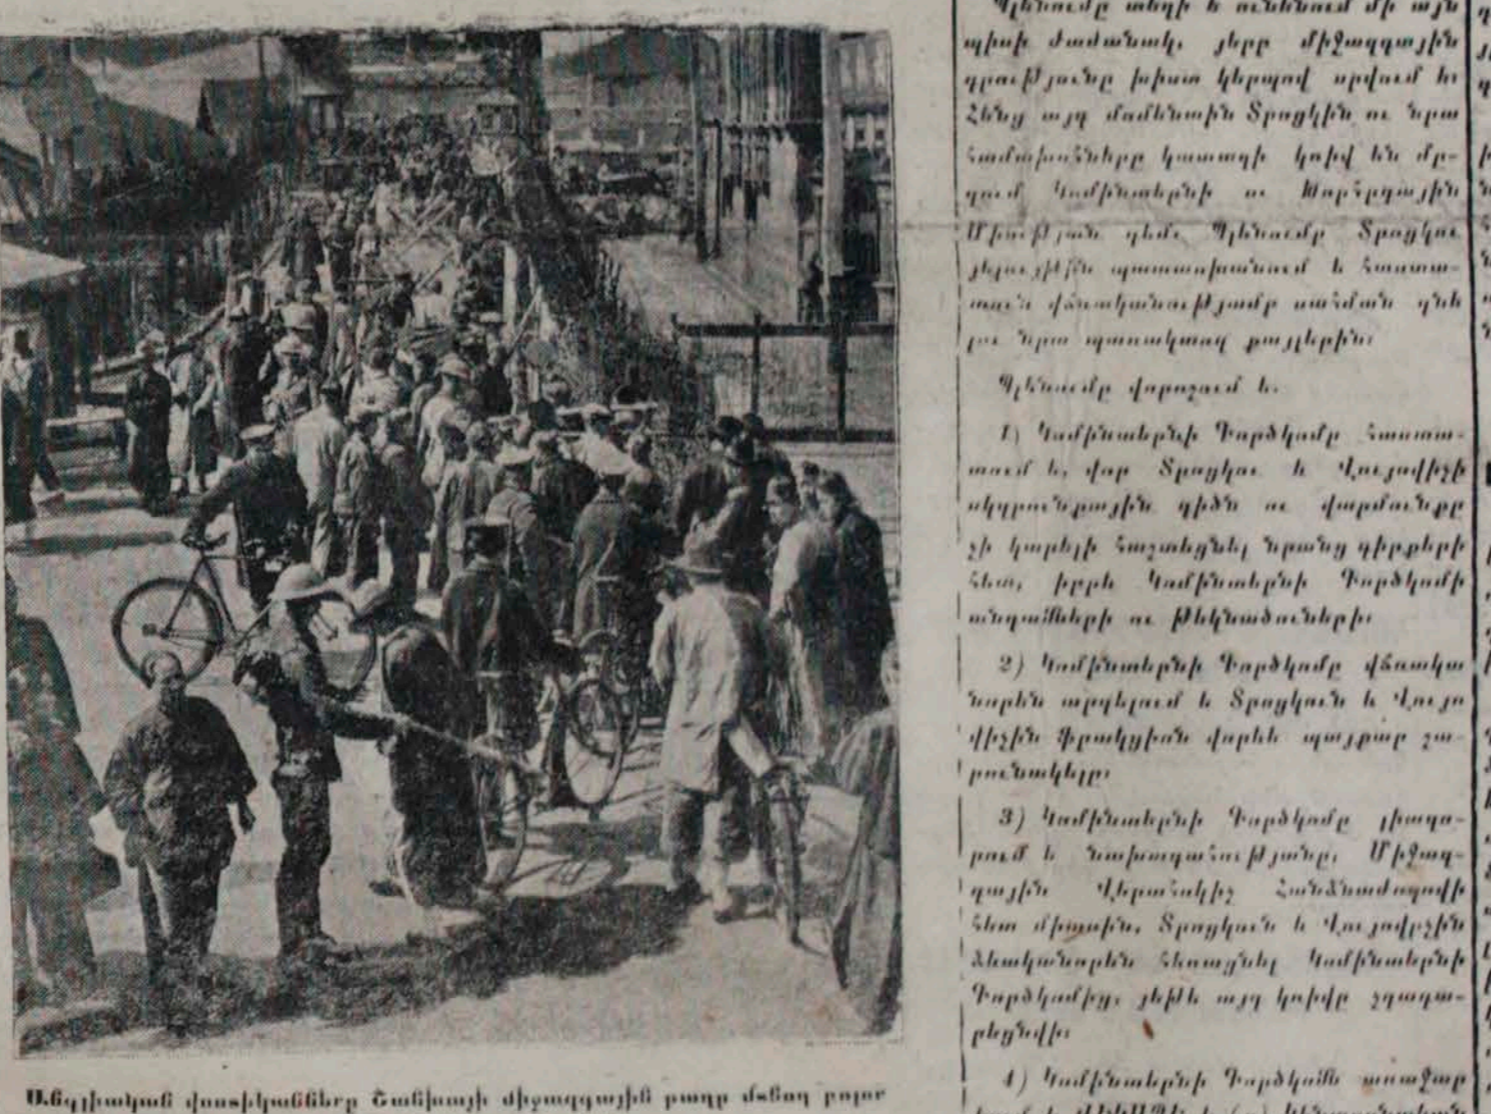 Անգլիական վոստիկանները Շանխայի միջազգային բաղը մտնող բոլոր
Պլենումը տեղի է ունենում մի այն
պիսի ժամանակ, յերբ միջազգային
դրությունը խիստ կերպով սրվում եւ
Հենց այդ մամենտին Տրոցկին ու նրա
համախոհները կատաղի կռիվ են մը-
ղում Կոմինտերնի ու Խորհրդային
Միության դեմ։ Պլենումը Տրոցկու
յելույթին պատասխանում է հաստա-
տուն վճռականությամբ սահման դնե
լու նրա պառակտող քայլերին։
Պլենումը վորոշում է.
1) Կոմինտերնի Գործկոմը հաստա-
տում է, վոր Տրոցկու և Վույովիչի
սկզբունքային գիծն ու վարմունքը
չի կարելի հաշտեցնել նրանց դիրքերի
հետ, իբրև Կոմինտերնի Գործկոմի
անդամների ու թեկնածուների։
2) Կոմինտերնի Գործկոմը վճռակա
նորեն արգելում է Տրոցկուն և Վույո
վիչին ֆրակցիոն վորևե պայքար շա-
րունակելը։
3) Կոմինտերնի Գործկոմը լիազո-
րում է նախագահությանը, Միջազ-
գային Վերահսկիչ Հանձնաժողովի
հետ միասին, Տրոցկուն և Վույովիչին
ձևականորեն հեռացնել Կոմինտերնի
Գործկոմից, յեթե այդ կռիվը չդադա-
րեցնվի։
4) Կոմինտերնի Գործկոմն առաջար